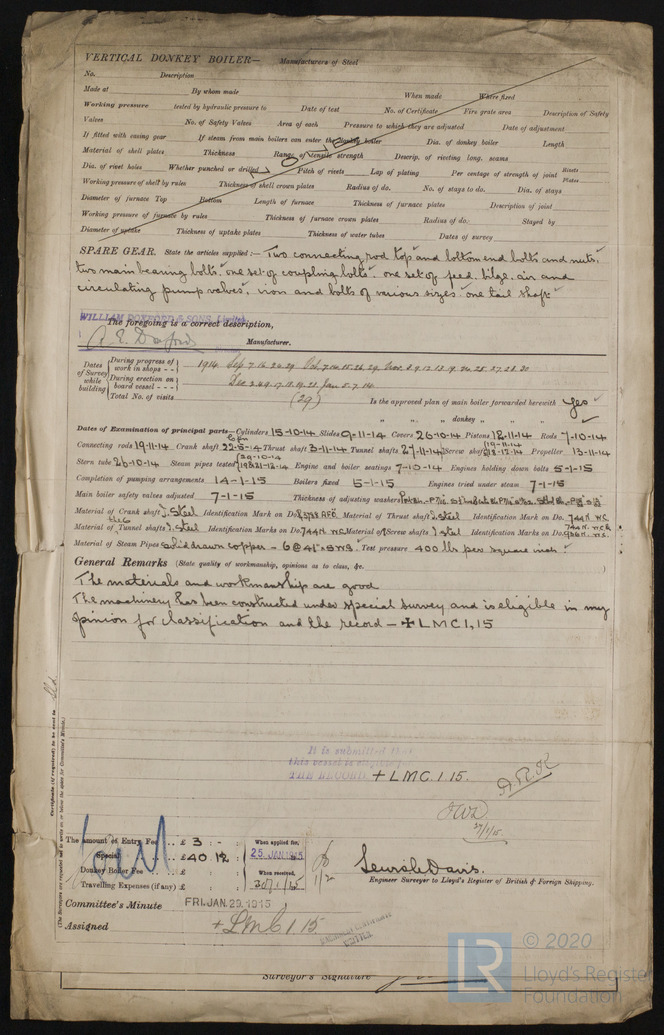 VERTICAL DONKEY BOILER— Manufacturers of Steel
No. Description
Made at By whom made When made Where fixed
Working pressure tested by hydraulic pressure to Date of test No. of Certificate Fire grate area Description of Safety
Valves No. of Safety Valves Area of each Pressure to which they are adjusted Date of adjustment
If fitted with casing gear If steam from main boilers can enter the donkey boiler Dia. of donkey boiler Length
Material of shell plates Thickness Range of tensile strength Descrip. of riveting long. seams
Dia. of rivet holes Whether punched or drilled Pitch of rivets Lap of plating Per centage of strength of joint Rivets Plates
Working pressure of shell by rules Thickness of shell crown plates Radius of do. No. of stays to do. Dia. of stays
Diameter of furnace Top Bottom Length of furnace Thickness of furnace plates Description of joint
Working pressure of furnace by rules Thickness of furnace crown plates Radius of do. Stayed by
Diameter of uptake Thickness of uptake plates Thickness of water tubes Dates of survey
SPARE GEAR. State the articles supplied:— Two connecting rod top and bottom end bolts and nuts,
two main bearing bolts, one set of coupling bolts, one set of feed, bilge, air and
circulating pump valves, iron and bolts of various sizes, one tail shaft
WILLIAM DOXFORD & SONS, Limited.
The foregoing is a correct description,
R. E. Doxford Manufacturer.
Dates of Survey while building
During progress of work in shops - - 1914 Sep 7. 16. 24. 29 Oct. 7. 10. 15. 26. 29. Nov. 3. 9. 12. 13. 19. 24. 25. 27. 28. 30
During erection on board vessel - - - Dec 2. 4. 9. 17. 18. 19. 21 Jan 5. 7. 14
Total No. of visits (29) Is the approved plan of main boiler forwarded herewith Yes
" " " donkey " " "
Dates of Examination of principal parts—Cylinders 15-10-14 Slides 9-11-14 Covers 26-10-14 Pistons 12-11-14 Rods 7-10-14
Connecting rods 19-11-14 Crank shaft 22-5-14 Thrust shaft 3-11-14 Tunnel shafts 27-11-14 Screw shaft Propeller 13-11-14
Stern tube 26-10-14 Steam pipes tested Engine and boiler seatings 7-10-14 Engines holding down bolts 5-1-15
Completion of pumping arrangements 14-1-15 Boilers fixed 5-1-15 Engines tried under steam 7-1-15
Main boiler safety valves adjusted 7-1-15 Thickness of adjusting washers
Material of Crank shaft I. Steel Identification Mark on Do. Material of Thrust shaft I. Steel Identification Mark on Do. 744N WC
Material of Tunnel shafts I. Steel Identification Marks on Do. 744N WC Material of Screw shafts I steel Identification Marks on Do.
Material of Steam Pipes Solid drawn copper - 6 @ 4½" × 5 WG. Test pressure 400 lbs per square inch
General Remarks (State quality of workmanship, opinions as to class, &c.
The materials and workmanship are good
The machinery has been constructed under special survey and is eligible in my
opinion for classification and the record — ✠ LMC 1,15
It is submitted that
this vessel is eligible for
THE RECORD + LMC. 1. 15.
A.R.K
JWD
29/1/15.
Certificate (if required) to be sent to
(The Surveyors are requested not to write on or below the space for Committee's Minute.)
The amount of Entry Fee .. £ 3 : - : When applied for,
Special .. £ 40 . 12 : 25. JAN 1915
Donkey Boiler Fee .. £ When received,
Travelling Expenses (if any) £ 30/1/15
Lewis Davis.
Engineer Surveyor to Lloyd's Register of British & Foreign Shipping.
Committee's Minute FRI. JAN. 29. 1915
Assigned + LMC 1. 15
Surveyor's Signature
LR
© 2020
Lloyd's Register
Foundation